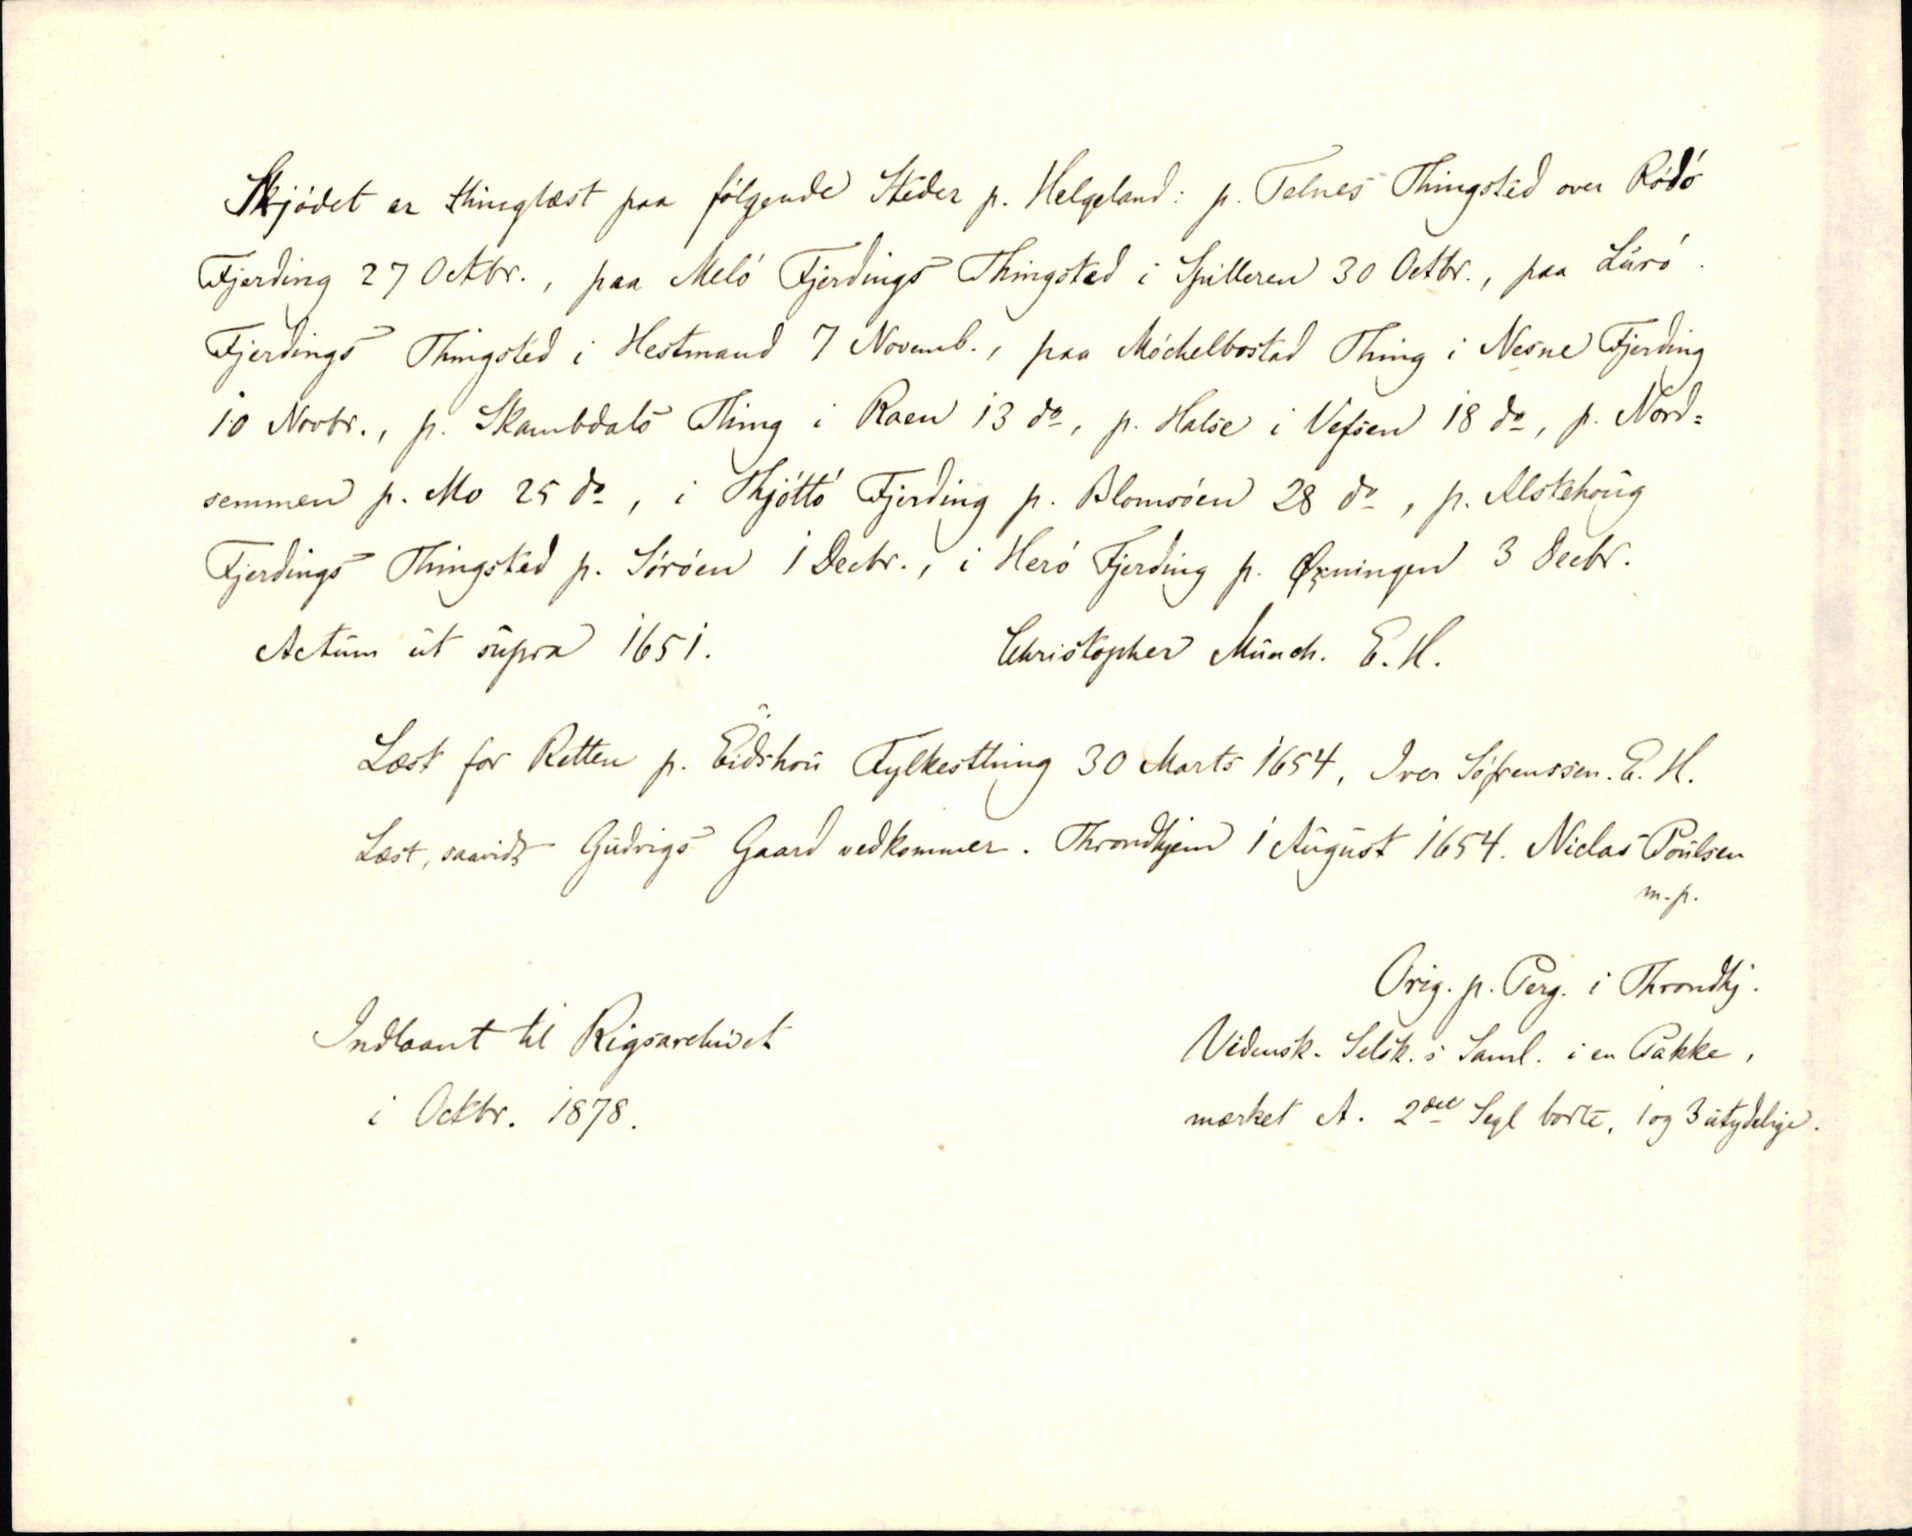 Skjödet er thinglæst paa fölgende Steder p. Helgeland: p. Telnes Thingsted over Rödö
Fjerding 27 Octbr., paa Melö Fjerdings Thingsted i Spilleren 30 Octbr., paa Lurö
Fjerdings Thingsted i Hestmand 7 Novemb., paa Möchelbostad Thing i Nesne Fjerding
10 Novbr., p. Skambdals Thing i Raen 13 do, p. Halse i Vefsen 18 do, p. Nord=
semmen p. Mo 25 do, i Thjöttö Fjerding p. Blomsöen 28 do, p. Alstehoug
Fjerdings Thingsted p. Söröen 1 Decbr., i Herö Fjerding p. Øxningen 3 Decbr.
Actum ut supra 1651. Christopher Münch. E. H.
Læst for Retten p. Eidshou Fylkesthing 30 Marts 1654, Iver Söfrenssen. E. H.
Læst, saavidt Gudvigs Gaard vedkommer. Throndhjem 1 August 1654. Niclas Poulsen
m. p.
Orig. p. Perg. i Throndhj.
Vidensk. Selsk.s Saml. i en Pakke,
mærket A. 2det Segl borte, 1 og 3 utydelige.
Indlaant til Rigsarchivet
i Octbr. 1878.